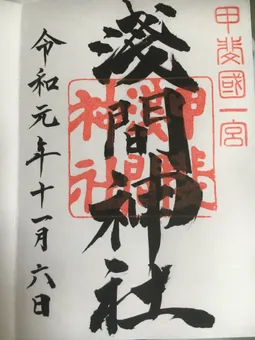 甲斐國一宮
浅間神社
甲斐國
浅間
神社
令和元年十一月六日